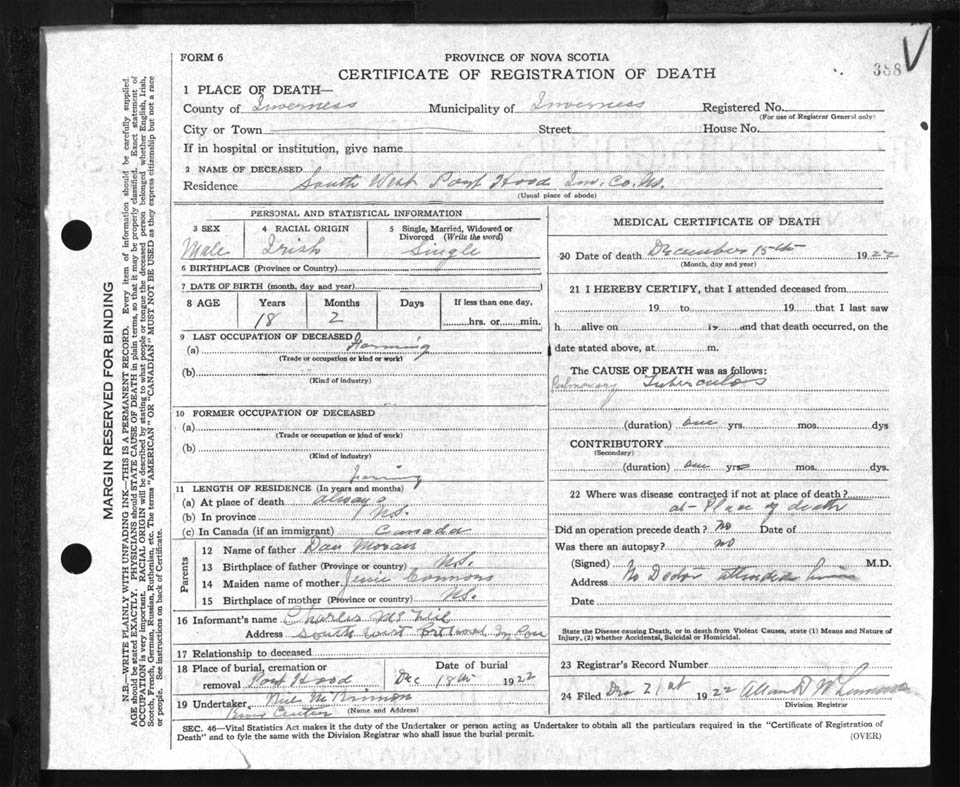 FORM 6
PROVINCE OF NOVA SCOTIA
CERTIFICATE OF REGISTRATION OF DEATH
388
1 PLACE OF DEATH—
County of Inverness Municipality of Inverness Registered No.
(For use of Registrar General only)
City or Town Street House No.
If in hospital or institution, give name
2 NAME OF DECEASED
Residence South West Port Hood Inv. Co. NS.
(Usual place of abode)
PERSONAL AND STATISTICAL INFORMATION
3 SEX Male
4 RACIAL ORIGIN Irish
5 Single, Married, Widowed or Divorced (Write the word) Single
6 BIRTHPLACE (Province or Country)
7 DATE OF BIRTH (month, day and year)
8 AGE Years Months Days If less than one day,
18 2 hrs. or min.
9 LAST OCCUPATION OF DECEASED
(a) Farming
(Trade or occupation or kind or work)
(b)
(Kind of industry)
10 FORMER OCCUPATION OF DECEASED
(a)
(Trade or occupation or kind of work)
(b)
(Kind of industry)
Farming
11 LENGTH OF RESIDENCE (In years and months)
(a) At place of death always
(b) In province NS.
(c) In Canada (if an immigrant) Canada
Parents
12 Name of father Dan Moran
13 Birthplace of father (Province or Country) NS.
14 Maiden name of mother Jessie Connors
15 Birthplace of mother (Province or Country) NS.
16 Informant's name Charles McNeil
Address South West Port Hood
17 Relationship to deceased
18 Place of burial, cremation or removal Port Hood
Date of burial
Dec 18th 1922
19 Undertaker Neil McKinnon
(Name and Address)
River Center
MEDICAL CERTIFICATE OF DEATH
20 Date of death December 15th 1922
(Month, day and year)
21 I HEREBY CERTIFY, that I attended deceased from
19 to 19 that I last saw
h alive on is and that death occurred, on the
date stated above, at m.
The CAUSE OF DEATH was as follows:
Pulmonary Tuberculos
(duration) one yrs. mos. dys
CONTRIBUTORY
(Secondary)
(duration) one yrs mos. dys.
22 Where was disease contracted if not at place of death?
at Place of death
Did an operation precede death? No Date of
Was there an autopsy? no
(Signed) M.D.
Address No Doctor attended
Date
State the Disease causing Death, or in death from Violent Causes, state (1) Means and Nature of
Injury, (2) whether Accidental, Suicidal or Homicidal.
23 Registrar's Record Number
24 Filed Dec 21st 1922
Division Registrar
SEC. 46—Vital Statistics Act makes it the duty of the Undertaker or person acting as Undertaker to obtain all the particulars required in the "Certificate of Registration of
Death" and to fyle the same with the Division Registrar who shall issue the burial permit.
(OVER)
MARGIN RESERVED FOR BINDING
N.B.—WRITE PLAINLY WITH UNFADING INK—THIS IS A PERMANENT RECORD. Every item of information should be carefully supplied.
AGE should be stated EXACTLY. PHYSICIANS should STATE CAUSE OF DEATH in plain terms, so that it may be properly classified. Exact statement of
OCCUPATION is very important. RACIAL ORIGIN will be described by stating to what people or tongue the deceased person belonged whether English, Irish,
Scotch, French, German, Russian, Ruthenian, etc. The terms "AMERICAN" OR "CANADIAN" MUST NOT BE USED as they express citizenship but not a race
or people. See instructions on back of Certificate.